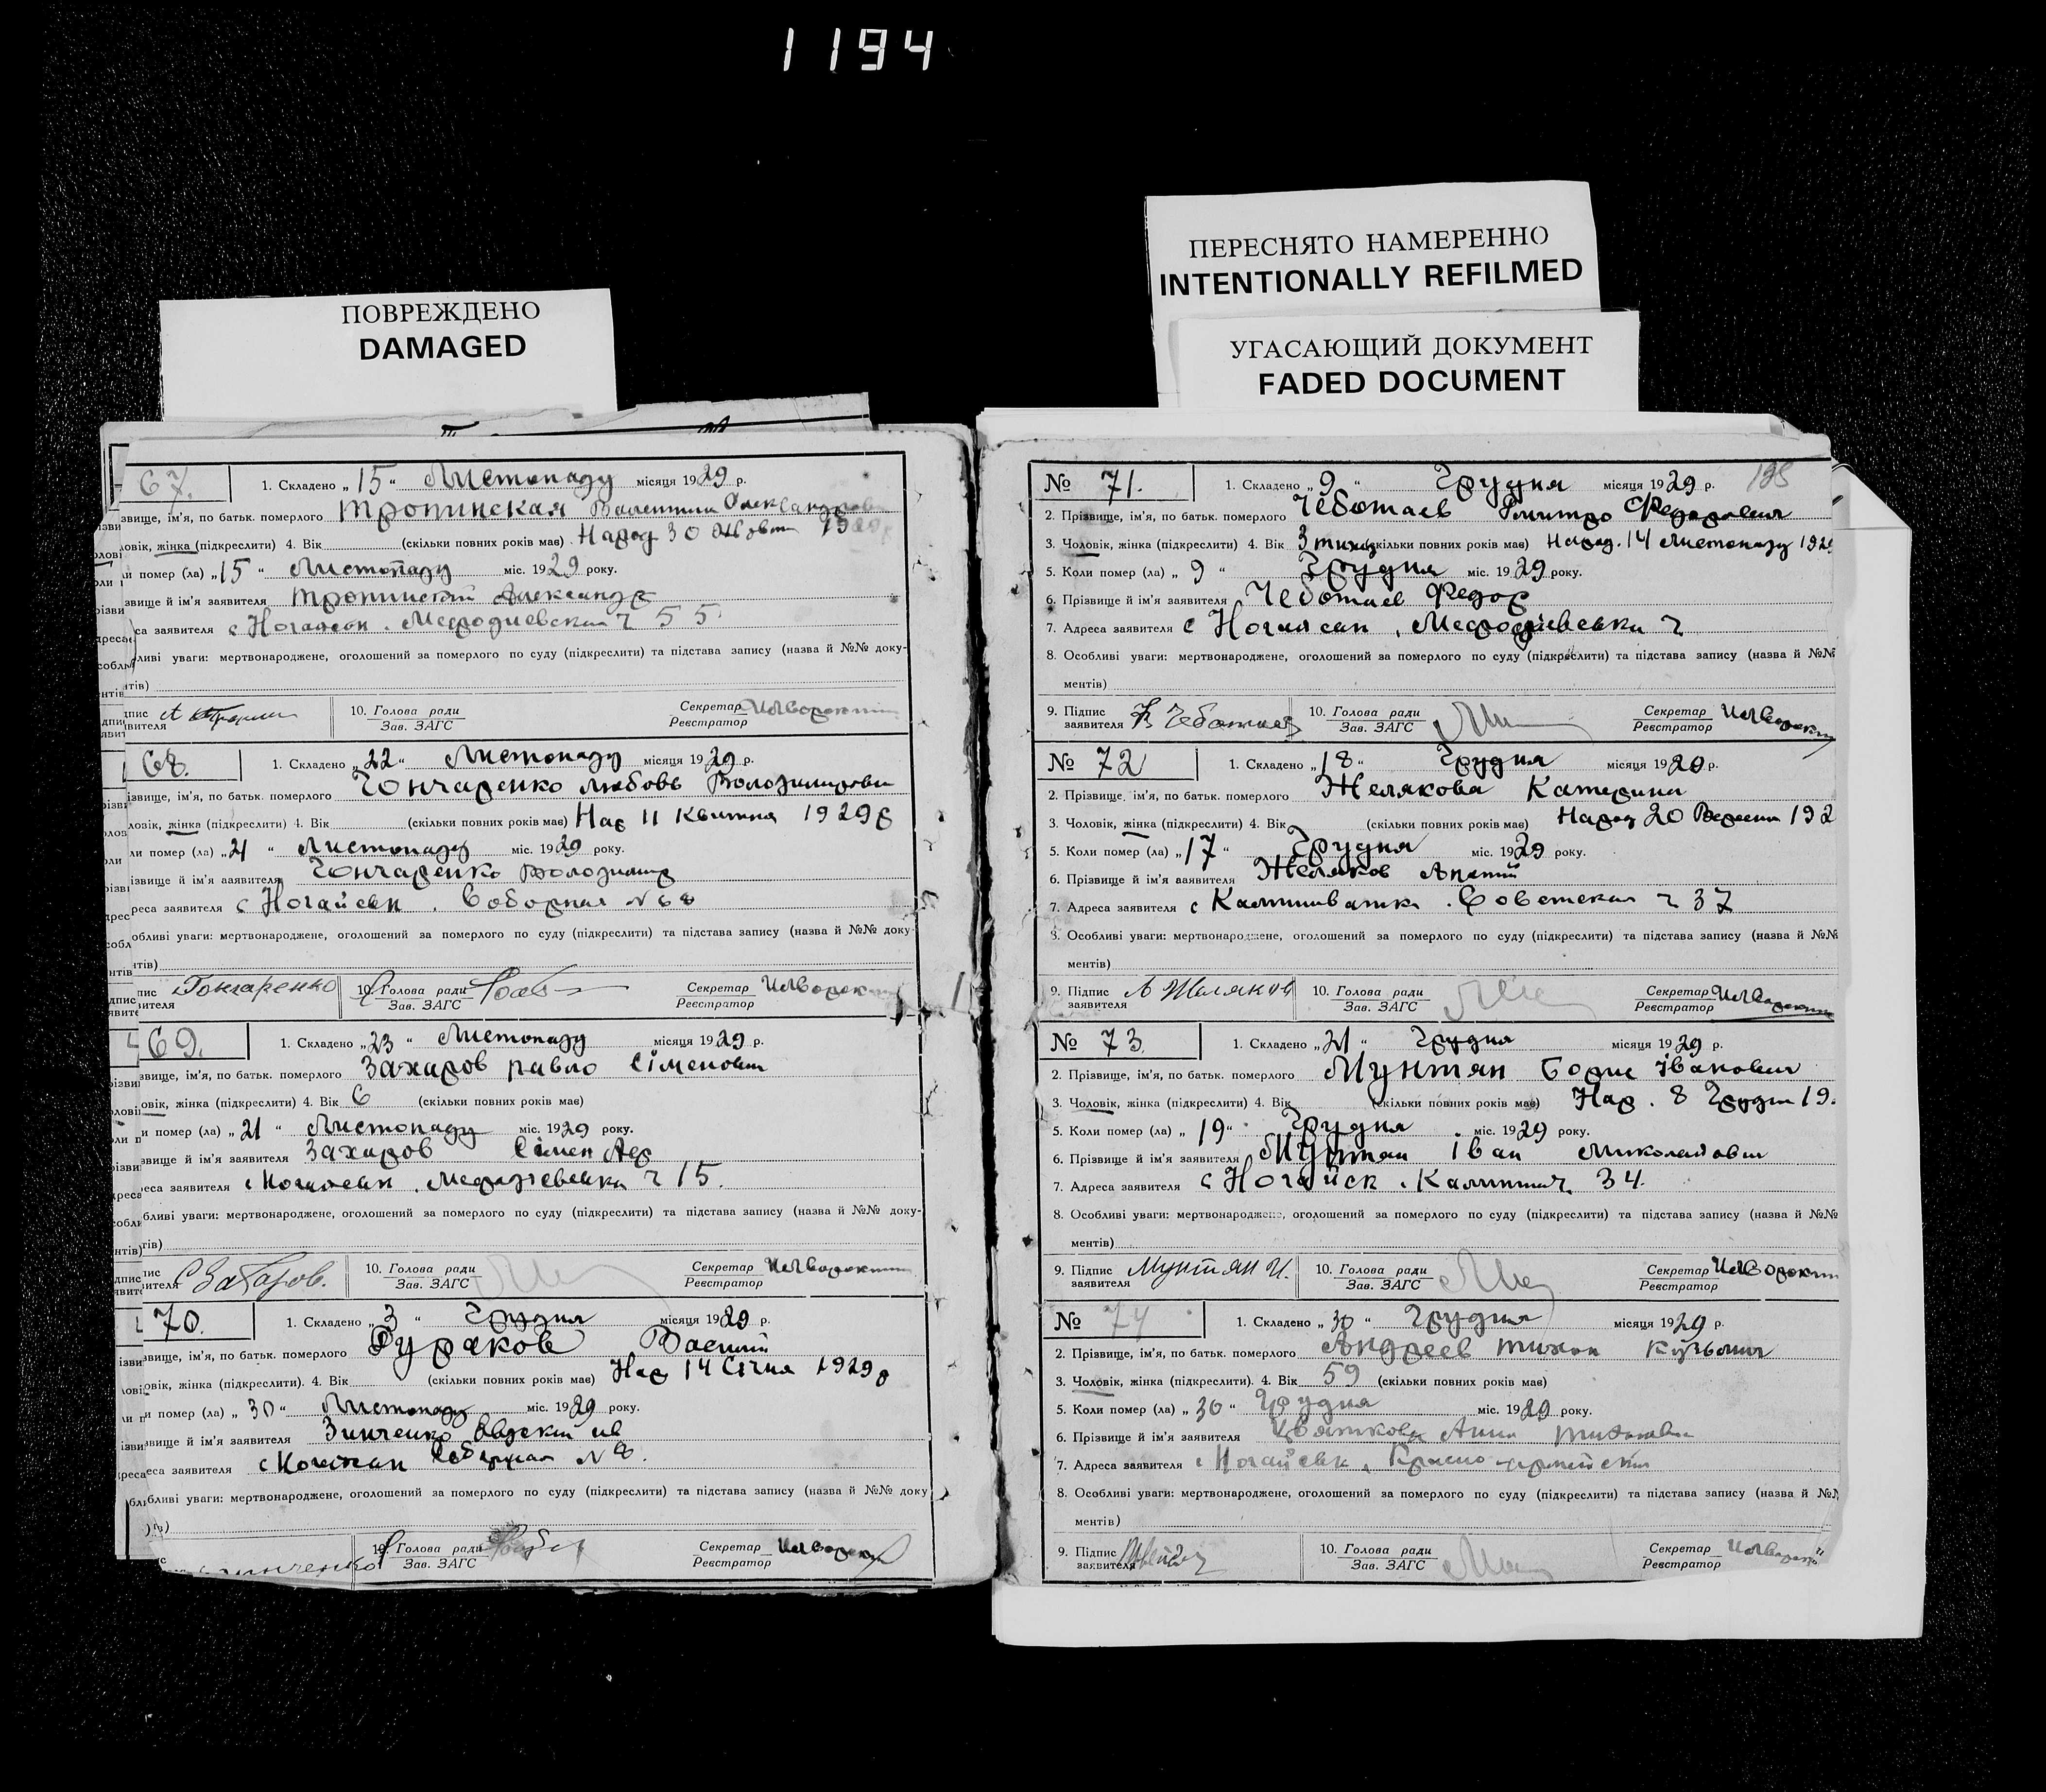 1194
ПЕРЕСНЯТО НАМЕРЕННО
INTENTIONALLY REFILMED
ПОВРЕЖДЕНО
DAMAGED
УГАСАЮЩИЙ ДОКУМЕНТ
FADED DOCUMENT
67. 1. Складено „15“ Листопаду місяця 1929 р.
звище, ім'я, по батьк. померлого Тропинская Валентина
овік, жінка (підкреслити) 4. Вік (скільки повних років має) Народ 30 Жовтн
и помер (ла) „15“ Листопаду міс. 1929 року.
звище й ім'я заявителя Тропинский Александр
са заявителя с Ногайськ 55
бливі уваги: мертвонароджене, оголошений за померлого по суду (підкреслити) та підстава запису (назва й №№ доку-
нтів)
дпис заявителя 10. Голова ради Зав. ЗАГС Секретар Реєстратор
68. 1. Складено „22“ Листопаду місяця 1929 р.
ізвище, ім'я, по батьк. померлого Гончаренко Любовь Володимировн
ловік, жінка (підкреслити) 4. Вік (скільки повних років має) Нар 11 Квітня 1929 р
ли помер (ла) „21“ Листопаду міс. 1929 року.
ізвище й ім'я заявителя Гончаренко Володимир
реса заявителя с Ногайськ. Соборная № 68
обливі уваги: мертвонароджене, оголошений за померлого по суду (підкреслити) та підстава запису (назва й №№ доку-
нтів)
пис явителя Гончаренко 10. Голова ради Зав. ЗАГС Секретар Реєстратор
69. 1. Складено „23“ Листопаду місяця 1929 р.
звище, ім'я, по батьк. померлого Захаров Павло Сіменович
овік, жінка (підкреслити) 4. Вік 6 (скільки повних років має)
и помер (ла) „21“ Листопаду міс. 1929 року.
звище й ім'я заявителя Захаров Сімен
еса заявителя с 15.
бливі уваги: мертвонароджене, оголошений за померлого по суду (підкреслити) та підстава запису (назва й №№ доку-
тів)
пис вителя С Захаров. 10. Голова ради Зав. ЗАГС Секретар Реєстратор
70. 1. Складено „3“ Грудня місяця 1929 р.
звище, ім'я, по батьк. померлого Василій
овік, жінка (підкреслити). 4. Вік (скільки повних років має) Нар 14 Січня 1929 р
и помер (ла) „30“ Листопаду міс. 1929 року.
звище й ім'я заявителя Зинченко
еса заявителя с Соборная № 8.
бливі уваги: мертвонароджене, оголошений за померлого по суду (підкреслити) та підстава запису (назва й №№ доку
10. Голова ради Зав. ЗАГС Секретар Реєстратор
№ 71. 1. Складено „9“ Грудня місяця 1929 р.
2. Прізвище, ім'я, по батьк. померлого Чеботаев Дмитро Федорович
3. Чоловік, жінка (підкреслити) 4. Вік 3 (скільки повних років має) Народ. 14 Листопаду 192
5. Коли помер (ла) „9“ Грудня міс. 1929 року.
6. Прізвище й ім'я заявителя Чеботаев Федор
7. Адреса заявителя с Ногайськ
8. Особливі уваги: мертвонароджене, оголошений за померлого по суду (підкреслити) та підстава запису (назва й №№
ментів)
9. Підпис заявителя Чеботаев 10. Голова ради Зав. ЗАГС Секретар Реєстратор
№ 72 1. Складено „18“ Грудня місяця 1929 р.
2. Прізвище, ім'я, по батьк. померлого Желякова Катерина
3. Чоловік, жінка (підкреслити) 4. Вік (скільки повних років має) Народ 20 Вересня 192
5. Коли помер (ла) „17“ Грудня міс. 1929 року.
6. Прізвище й ім'я заявителя Желяков
7. Адреса заявителя с Советская ч 37
8. Особливі уваги: мертвонароджене, оголошений за померлого по суду (підкреслити) та підстава запису (назва й №№
ментів)
9. Підпис заявителя А Желяков 10. Голова ради Зав. ЗАГС Секретар Реєстратор
№ 73 1. Складено „21“ Грудня місяця 1929 р.
2. Прізвище, ім'я, по батьк. померлого Мунтян Борис Іванович
3. Чоловік, жінка (підкреслити) 4. Вік (скільки повних років має) Нар. 8 Грудня 19
5. Коли помер (ла) „19“ Грудня міс. 1929 року.
6. Прізвище й ім'я заявителя Мунтян Іван Миколайович
7. Адреса заявителя с Ногайск. 34.
8. Особливі уваги: мертвонароджене, оголошений за померлого по суду (підкреслити) та підстава запису (назва й №№
ментів)
9. Підпис заявителя Мунтян И. 10. Голова ради Зав. ЗАГС Секретар Реєстратор
№ 74 1. Складено „30“ Грудня місяця 1929 р.
2. Прізвище, ім'я, по батьк. померлого Андреев Тихон Кузьмич
3. Чоловік, жінка (підкреслити). 4. Вік 59 (скільки повних років має)
5. Коли помер (ла) „30“ Грудня міс. 1929 року.
6. Прізвище й ім'я заявителя Анна Тихоновна
7. Адреса заявителя с Ногайськ,
8. Особливі уваги: мертвонароджене, оголошений за померлого по суду (підкреслити) та підстава запису (назва й №№
ментів)
9. Підпис заявителя 10. Голова ради Зав. ЗАГС Секретар Реєстратор